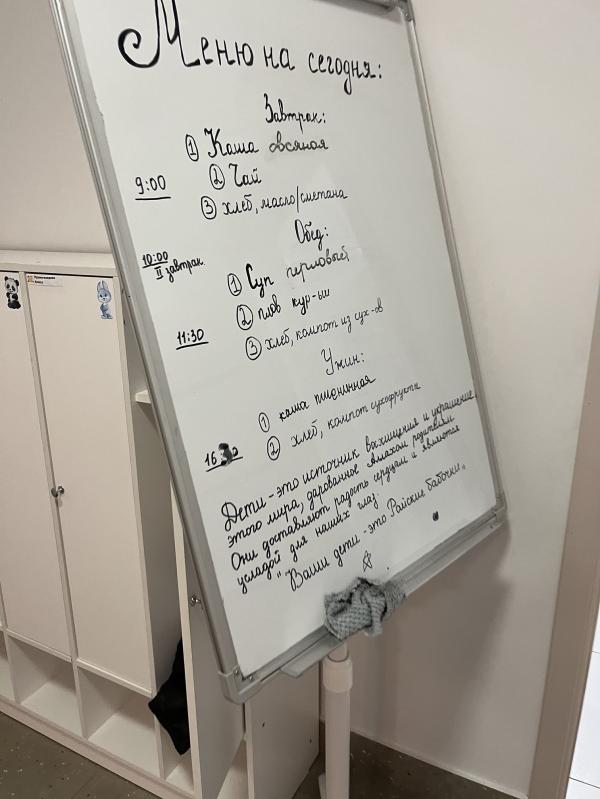 Меню на сегодня:
Завтрак:
① Каша овсяная
② Чай
9:00
③ хлеб, масло/сметана
10:00
II завтрак.
Обед:
① Суп перловый
② плов кур-ый
11:30
③ хлеб, компот из сух-ов
Ужин:
① каша пшеничная
② хлеб, компот сухофрукты
16:30
Дети - это источник восхищения и украшение
этого мира, дарованное Аллахом родителям
Они доставляют радость сердцам и являются
усладой для наших глаз.
"Ваши дети - это Райские бабочки"